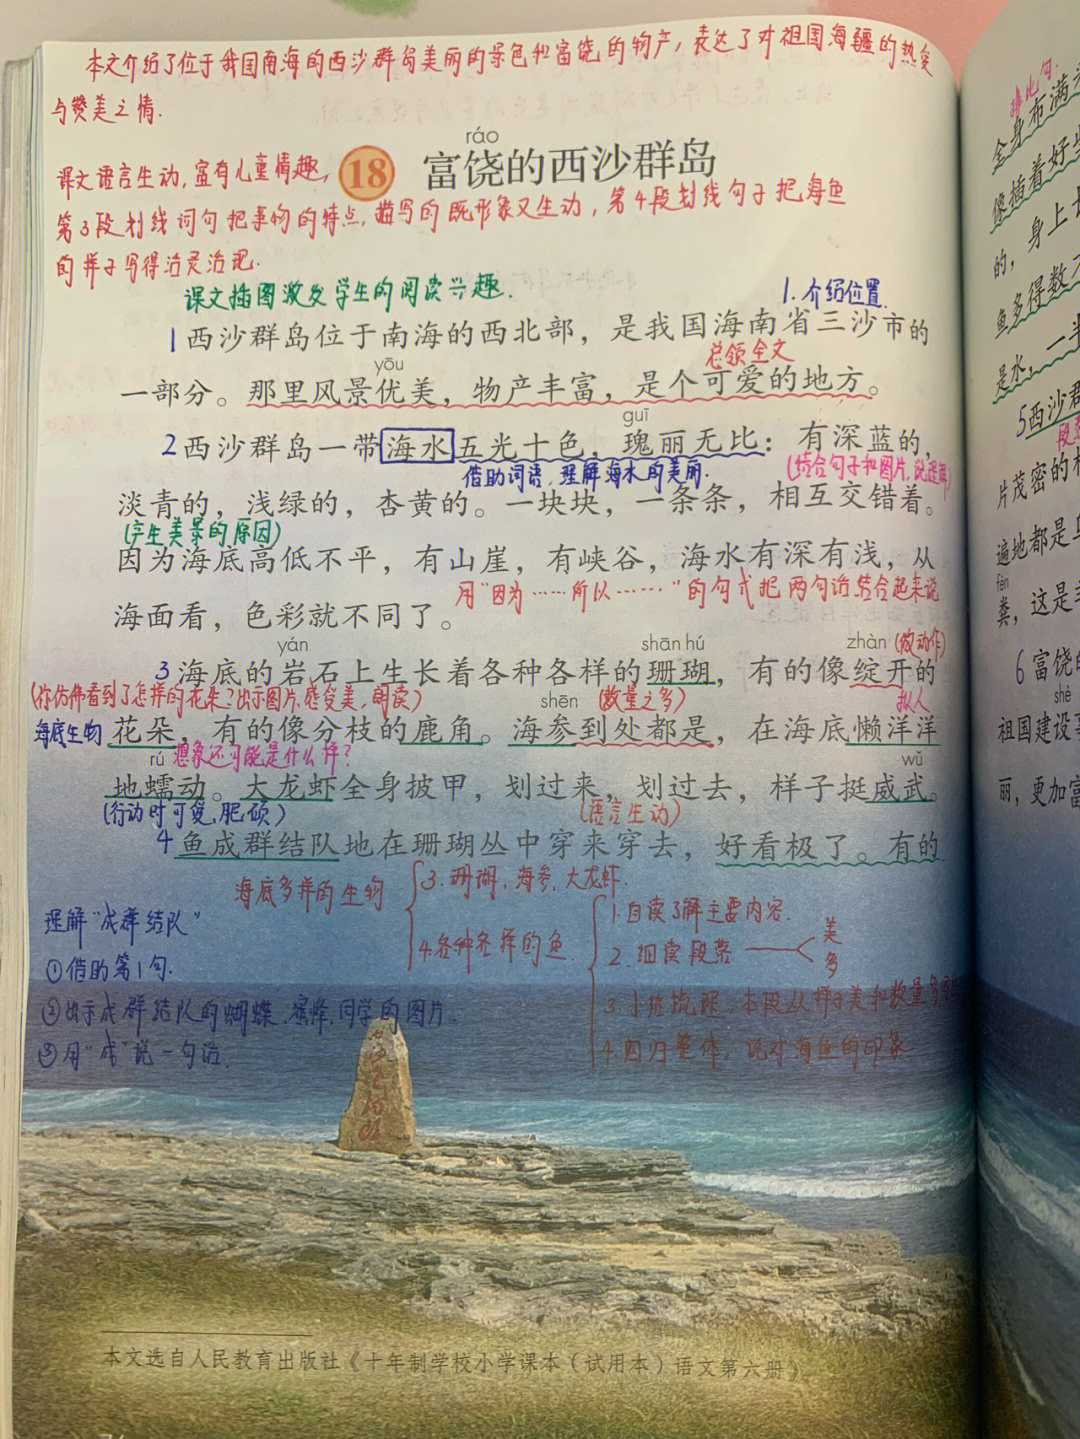 本文介绍了位于我国南海的西沙群岛美丽的景色和富饶的物产，表达了对祖国海疆的热爱
与赞美之情.
ráo
18 富饶的西沙群岛
课文语言生动,富有儿童情趣,
第3段划线词句把事物的特点,描写的既形象又生动,第4段划线句子把海鱼
的样子写得活灵活现.
课文插图激发学生的阅读兴趣.
1.介绍位置.
1西沙群岛位于南海的西北部，是我国海南省三沙市的
总领全文
yōu
一部分。那里风景优美，物产丰富，是个可爱的地方。
guī
2西沙群岛一带海水五光十色，瑰丽无比：有深蓝的，
借助词语,理解海水的美丽.
(结合句子和图片,说理解)
淡青的，浅绿的，杏黄的。一块块，一条条，相互交错着。
(产生美景的原因)
因为海底高低不平，有山崖，有峡谷，海水有深有浅，从
用"因为……所以……"的句式把两句话结合起来说
海面看，色彩就不同了。
yán shān hú zhàn (做动作)
3海底的岩石上生长着各种各样的珊瑚，有的像绽开的
(你仿佛看到了怎样的花朵?出示图片,感受美,朗读)
shēn (数量之多) 拟人
海底生物 花朵，有的像分枝的鹿角。海参到处都是，在海底懒洋洋
rú 想象还可能是什么样? wǔ
地蠕动。大龙虾全身披甲，划过来，划过去，样子挺威武。
(行动时可爱,肥硕) (语言生动)
4鱼成群结队地在珊瑚丛中穿来穿去，好看极了。有的
海底多样的生物
3.珊瑚,海参,大龙虾.
4.各种各样的鱼
1.自读了解主要内容.
2.细读段落
美
多
3.小结梳理,本段从样子美和数量多
4.回归整体,说对海鱼的印象
理解"成群结队"
①借助第1句.
②出示成群结队的蝴蝶.蜜蜂,同学的图片.
③用"成"说一句话.
本文选自人民教育出版社《十年制学校小学课本（试用本）语文第六册》。
排比句.
全身布满
像插着好
的，身上长
鱼多得数
是水，一半
5西沙群
片茂密的
遍地都是
fèn
粪，这是
6富饶的
shè
祖国建设
丽，更加富